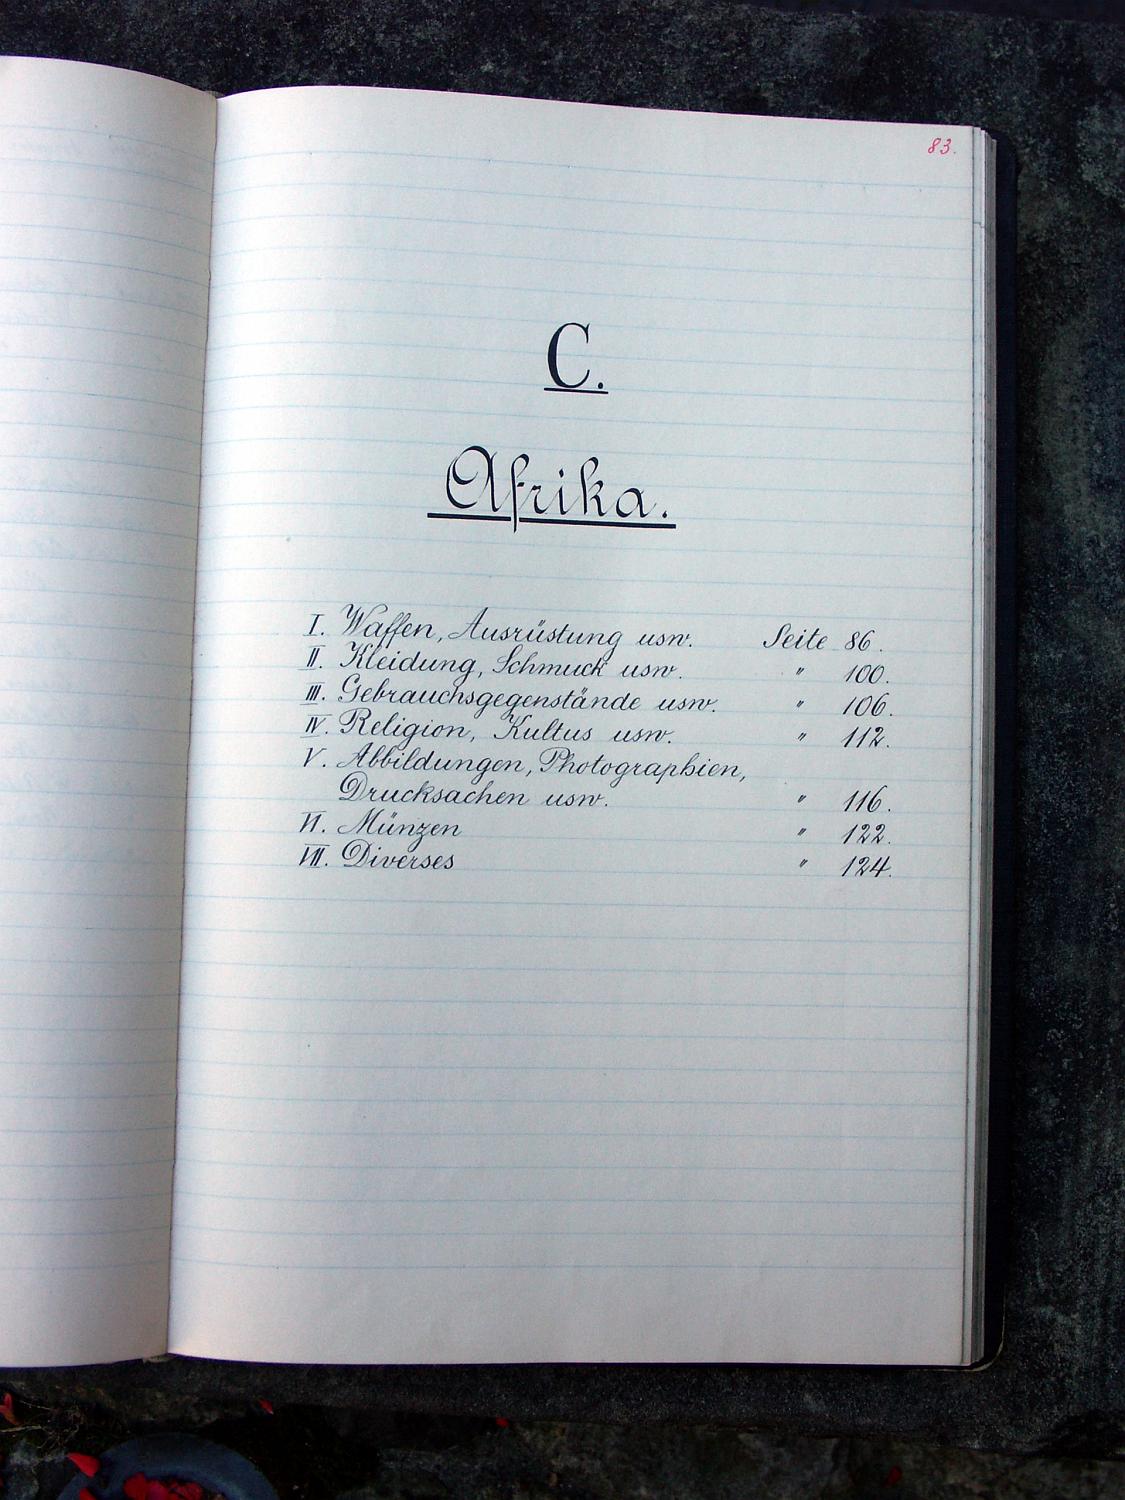 83.
C.
Afrika.
I. Waffen, Ausrüstung usw. Seite 86.
II. Kleidung, Schmuck usw. " 100.
III. Gebrauchsgegenstände usw. " 106.
IV. Religion, Kultus usw. " 112.
V. Abbildungen, Photographien,
Drucksachen usw. " 116.
VI. Münzen " 122.
VII. Diverses " 124.